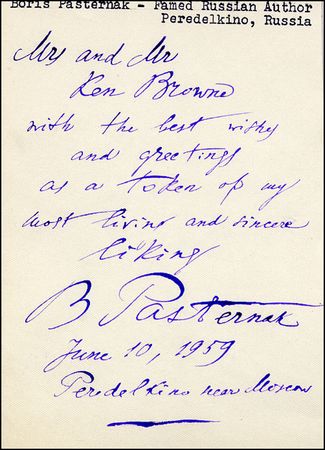 Boris Pasternak - Famed Russian Author
Peredelkino, Russia
Mrs and Mr
Ken Browne
with the best wishes
and greetings
as a token of my
most living and sincere
liking
B Pasternak
June 10, 1959
Peredelkino near Moscow